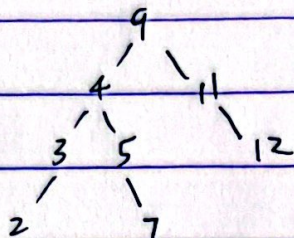 9
4 11
3 5 12
2 7